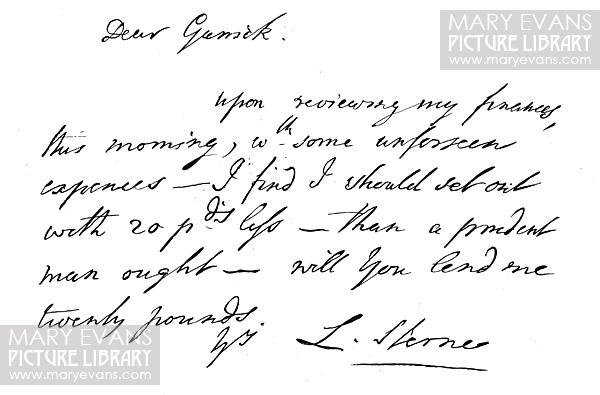 MARY EVANS
PICTURE LIBRARY
www.maryevans.com
Dear Garrick.
upon reviewing my finances,
this morning, wth some unforseen
expences – I find I should set out
with 20 pds less – than a prudent
man ought – will You lend me
twenty pounds.
Yrs. L. Sterne
MARY EVANS
PICTURE LIBRARY
www.maryevans.com